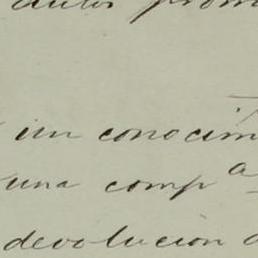 autos prom
un conocim
una compª
devolucion d